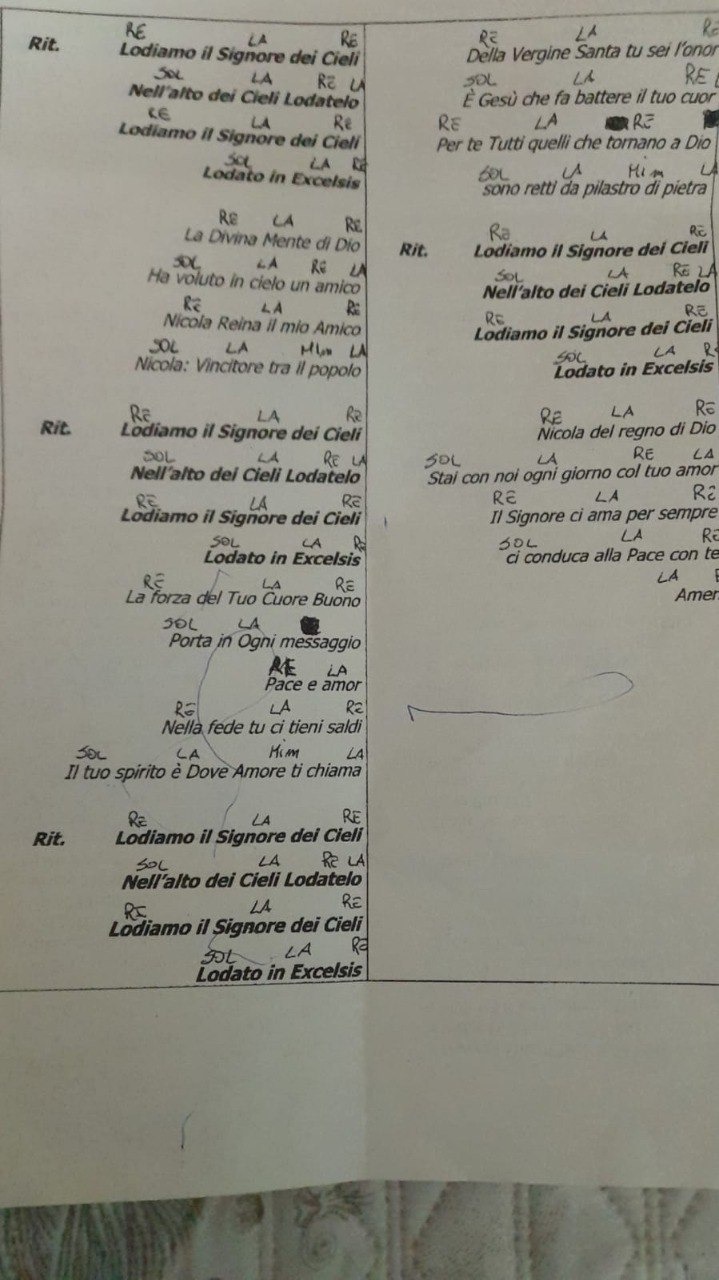 RE LA RE
Rit. Lodiamo il Signore dei Cieli
SOL LA RE LA
Nell'alto dei Cieli Lodatelo
RE LA RE
Lodiamo il Signore dei Cieli
SOL LA RE
Lodato in Excelsis
RE LA RE
La Divina Mente di Dio
SOL LA RE LA
Ha voluto in cielo un amico
RE LA RE
Nicola Reina il mio Amico
SOL LA MIm LA
Nicola: Vincitore tra il popolo
RE LA RE
Rit. Lodiamo il Signore dei Cieli
SOL LA RE LA
Nell'alto dei Cieli Lodatelo
RE LA RE
Lodiamo il Signore dei Cieli
SOL LA RE
Lodato in Excelsis
RE LA RE
La forza del Tuo Cuore Buono
SOL LA
Porta in Ogni messaggio
RE LA
Pace e amor
RE LA RE
Nella fede tu ci tieni saldi
SOL LA MIm LA
Il tuo spirito è Dove Amore ti chiama
RE LA RE
Rit. Lodiamo il Signore dei Cieli
SOL LA RE LA
Nell'alto dei Cieli Lodatelo
RE LA RE
Lodiamo il Signore dei Cieli
SOL LA RE
Lodato in Excelsis
RE LA RE
Della Vergine Santa tu sei l'onor
SOL LA RE
È Gesù che fa battere il tuo cuor
RE LA RE
Per te Tutti quelli che tornano a Dio
SOL LA MIm LA
sono retti da pilastro di pietra
RE LA RE
Rit. Lodiamo il Signore dei Cieli
SOL LA RE LA
Nell'alto dei Cieli Lodatelo
RE LA RE
Lodiamo il Signore dei Cieli
SOL LA
Lodato in Excelsis
RE LA RE
Nicola del regno di Dio
SOL LA RE LA
Stai con noi ogni giorno col tuo amor
RE LA RE
Il Signore ci ama per sempre
SOL LA RE
ci conduca alla Pace con te
LA
Amen